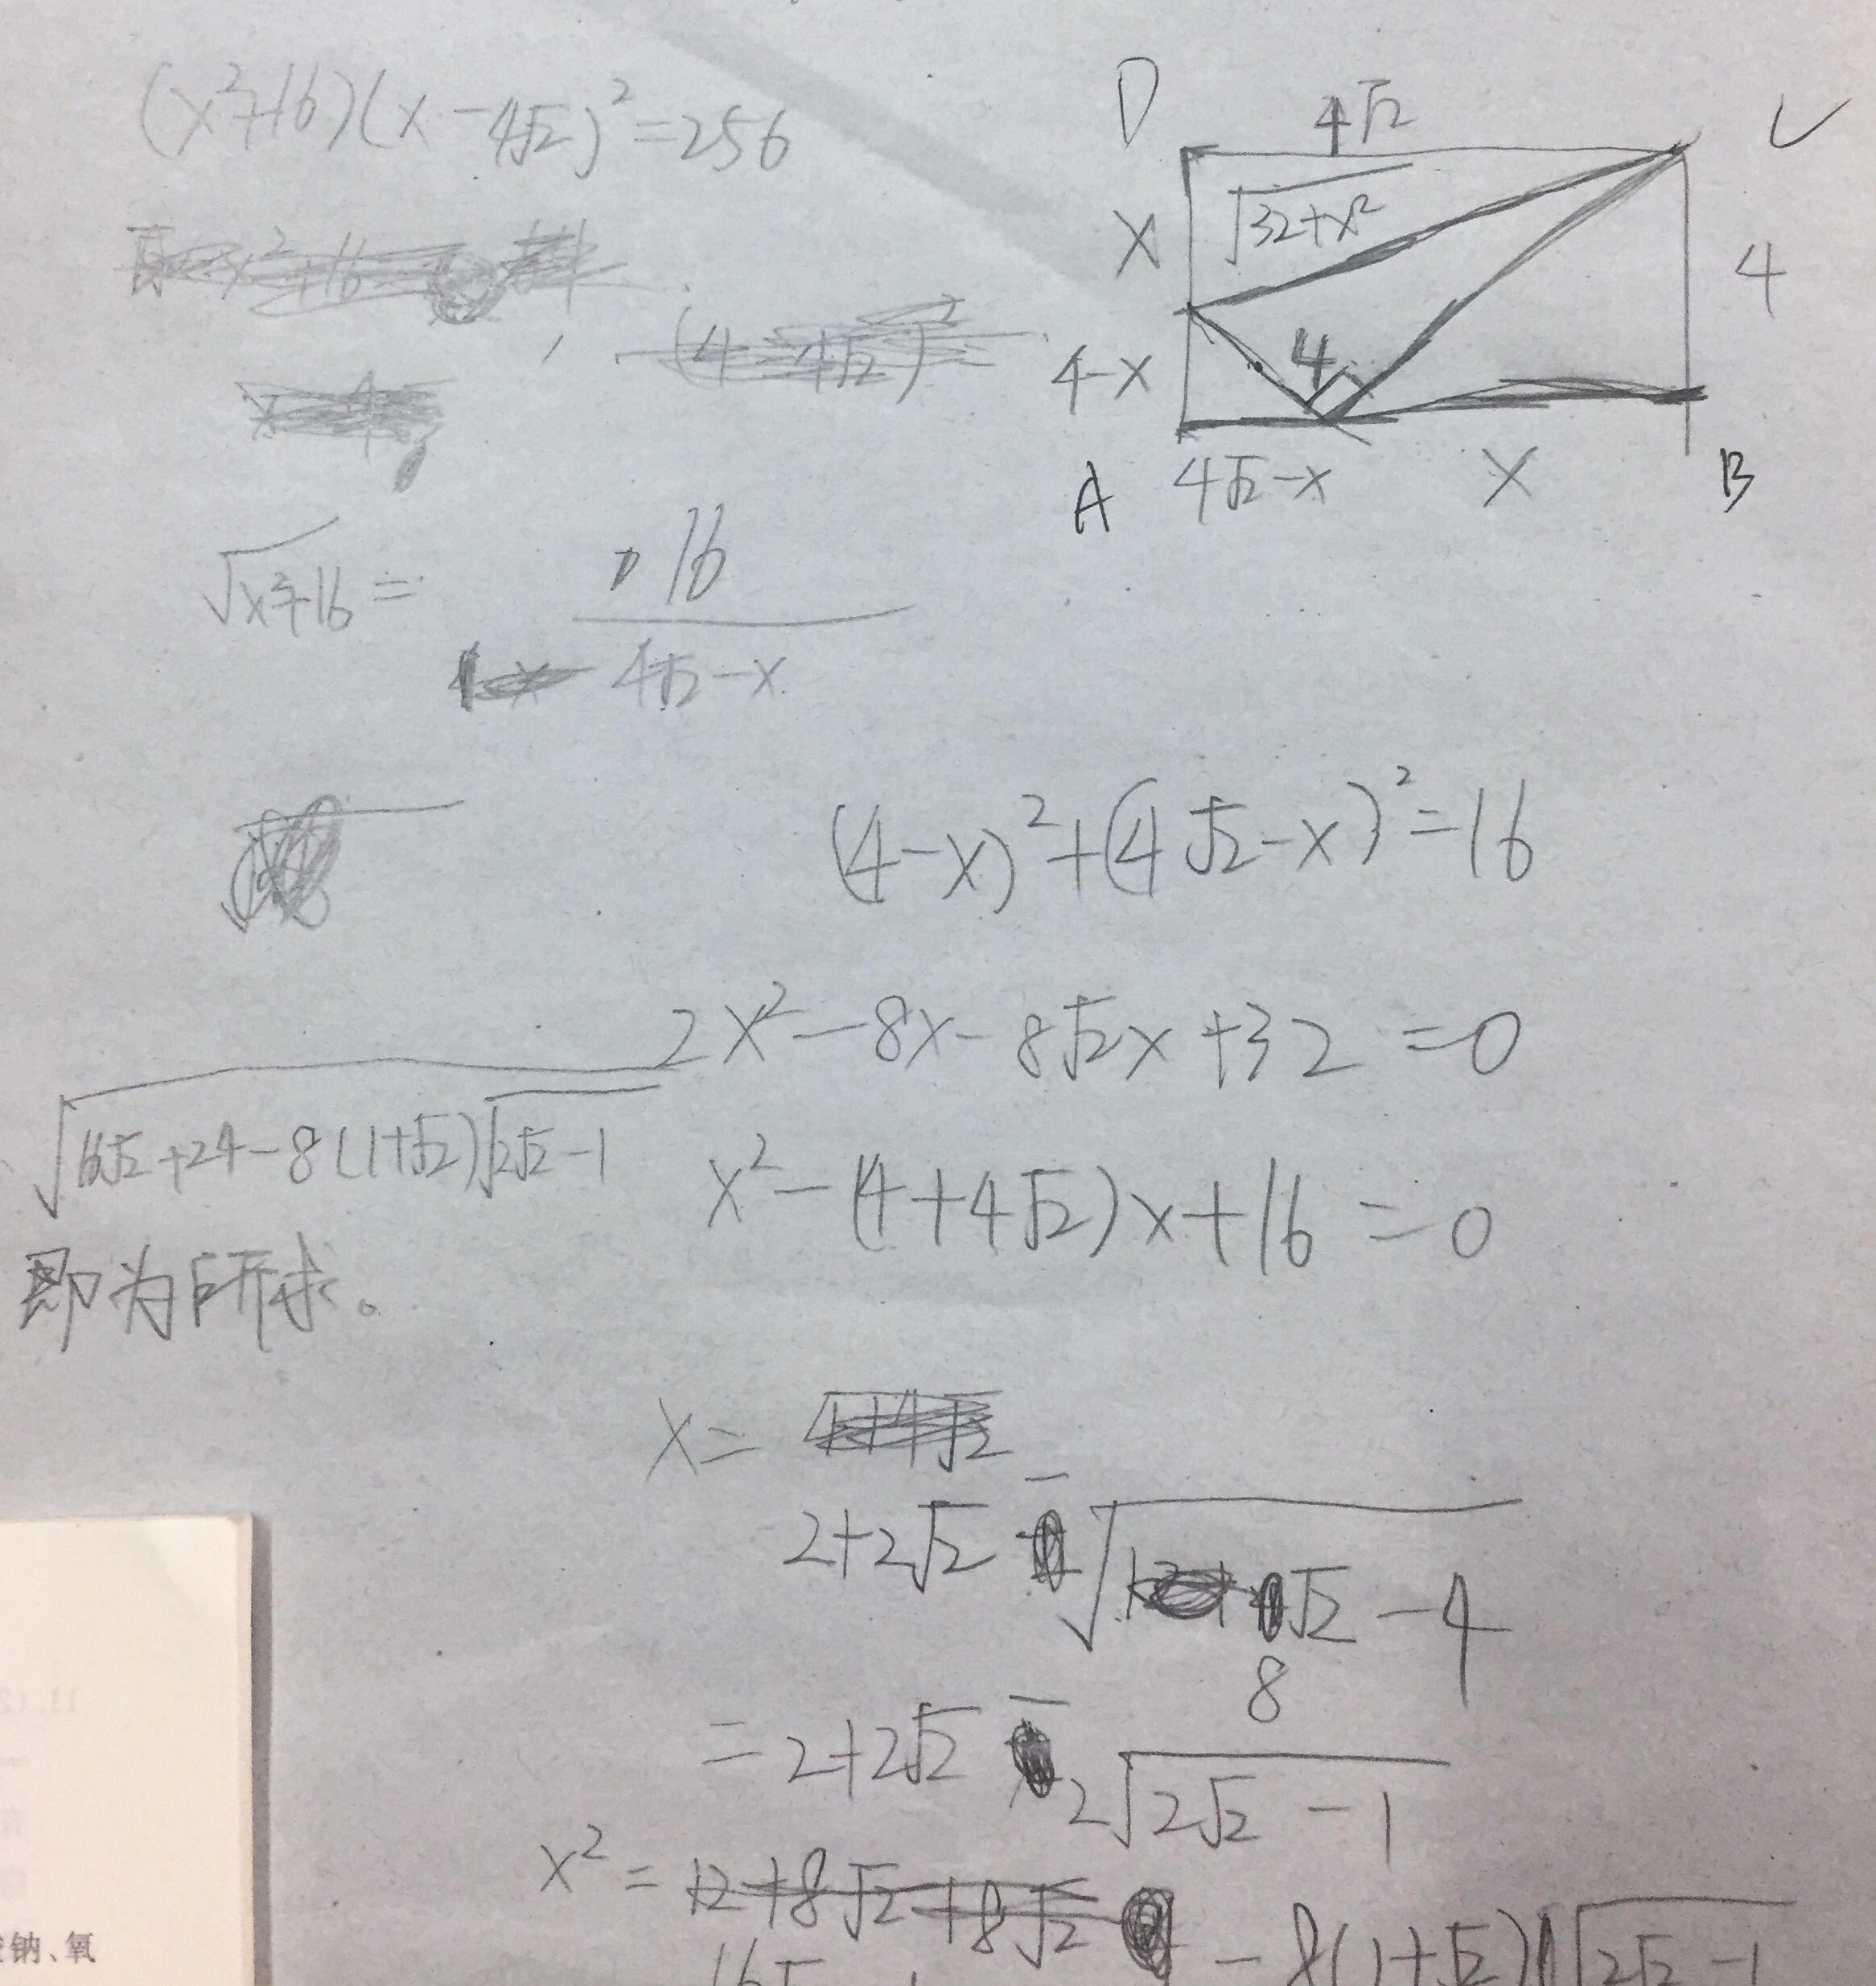 (x²+16)(x-4√2)²=256
D 4√2 C
x √(32+x²) 4
4-x 4
A 4√2-x x B
√(x²+16) = 16/(4√2-x)
(4-x)²+(4√2-x)²=16
2x²-8x-8√2x+32=0
√(16√2+24-8(1+√2)√(2√2-1))
x²-(4+4√2)x+16=0
即为所求。
x=
2+2√2-√(8√2-4)
=2+2√2-2√(2√2-1)
x²=
-8(1+√2)√(2√2-1)
钠、氧